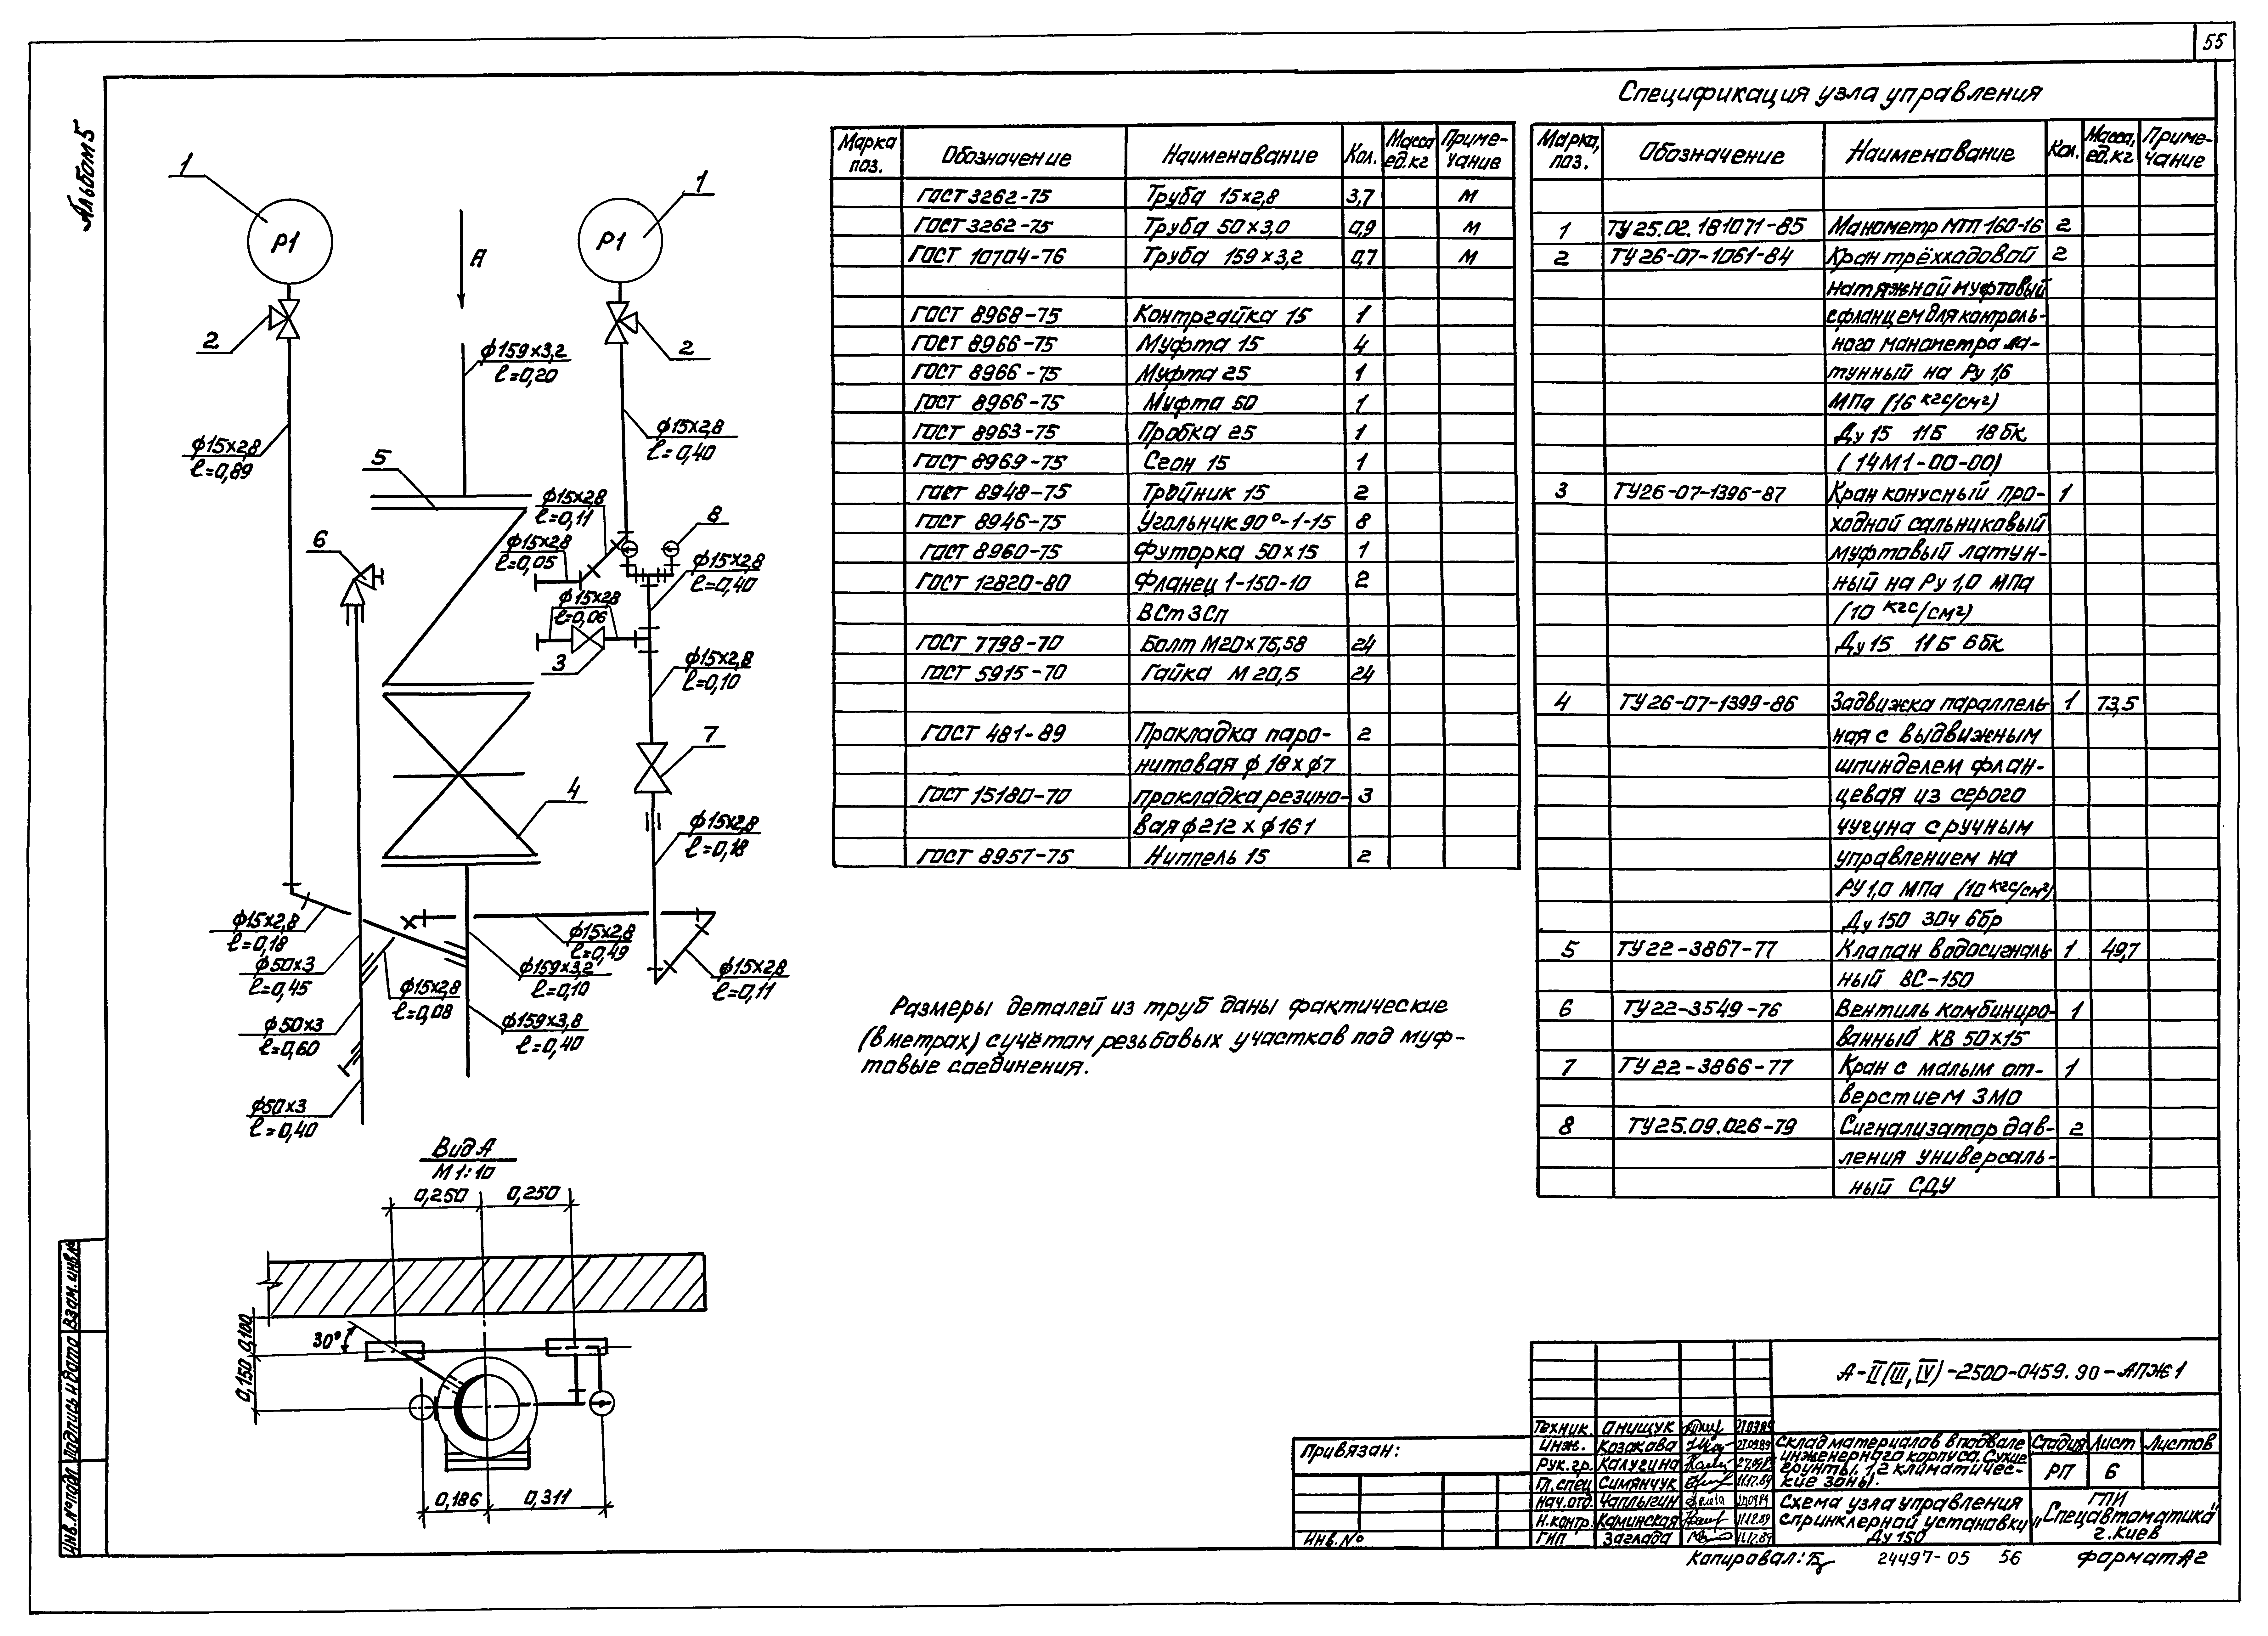 55
Альбом 5
Спецификация узла управления
1
1
P1
P1
A
2
2
ф159×3,2
ℓ=0,20
ф15×2,8
ℓ=0,89
ф15×2,8
ℓ=0,40
5
ф15×2,8
ℓ=0,11
8
6
ф15×2,8
ℓ=0,05
ф15×2,8
ℓ=0,40
ф15×2,8
ℓ=0,06
3
ф15×2,8
ℓ=0,10
7
4
ф15×2,8
ℓ=0,18
ф15×2,8
ℓ=0,18
ф15×2,8
ℓ=0,49
ф50×3
ℓ=0,45
ф15×2,8
ℓ=0,08
ф159×3,2
ℓ=0,10
ф15×2,8
ℓ=0,11
ф50×3
ℓ=0,60
ф159×3,8
ℓ=0,40
ф50×3
ℓ=0,40
Вид А
М 1:10
0,250 0,250
30°
0,150 0,100
0,186 0,311
Марка поз. Обозначение Наименование Кол. Масса ед.кг Приме-чание
ГОСТ 3262-75 Труба 15×2,8 3,7 м
ГОСТ 3262-75 Труба 50×3,0 0,9 м
ГОСТ 10704-76 Труба 159×3,2 0,7 м
ГОСТ 8968-75 Контргайка 15 1
ГОСТ 8966-75 Муфта 15 4
ГОСТ 8966-75 Муфта 25 1
ГОСТ 8966-75 Муфта 50 1
ГОСТ 8963-75 Пробка 25 1
ГОСТ 8969-75 Сгон 15 1
ГОСТ 8948-75 Тройник 15 2
ГОСТ 8946-75 Угольник 90°-1-15 8
ГОСТ 8960-75 Футорка 50×15 1
ГОСТ 12820-80 Фланец 1-150-10 2
ВСт3Сп
ГОСТ 7798-70 Болт М20×75,58 24
ГОСТ 5915-70 Гайка М 20,5 24
ГОСТ 481-89 Прокладка паро- 2
нитовая ф 18 × ф7
ГОСТ 15180-70 Прокладка резино- 3
вая ф212 × ф161
ГОСТ 8957-75 Ниппель 15 2
Размеры деталей из труб даны фактические
(в метрах) с учётом резьбовых участков под муф-
товые соединения.
Марка, поз. Обозначение Наименование Кол. Масса, ед.кг Приме-чание
1 ТУ 25.02.181071-85 Манометр МТП 160-16 2
2 ТУ 26-07-1061-84 Кран трёхходовой 2
натяжной муфтовый
с фланцем для контроль-
ного манометра ла-
тунный на Ру 1,6
МПа (16 кгс/см²)
Ду 15 11Б 18бк
(14М1-00-00)
3 ТУ26-07-1396-87 Кран конусный про- 1
ходной сальниковый
муфтовый латун-
ный на Ру 1,0 МПа
(10 кгс/см²)
Ду 15 11Б 6бк
4 ТУ26-07-1399-86 Задвижка параллель- 1 73,5
ная с выдвижным
шпинделем флан-
цевая из серого
чугуна с ручным
управлением на
РУ 1,0 МПа (10 кгс/см²)
Ду 150 30ч 6бр
5 ТУ22-3867-77 Клапан водосигналь- 1 49,7
ный ВС-150
6 ТУ22-3549-76 Вентиль комбиниро- 1
ванный КВ 50×15
7 ТУ 22-3866-77 Кран с малым от- 1
верстием 3МО
8 ТУ25.09.026-79 Сигнализатор дав- 2
ления универсаль-
ный СДУ
Взам.инв.№
Подпись и дата
Инв.№ подл
Привязан:
Инв.№
А-II(III,IV)-2500-0459.90-АПЖ1
Техник. Онищук 27.09.89
Инж. Козакова 27.09.89
Рук.гр. Калугина 27.09.89
Гл.спец Симянчук 11.12.89
Нач.отд. Чаплыгин
Н.контр. Каминская 11.12.89
ГИП Заглада 11.12.89
Склад материалов в подвале
инженерного корпуса. Сухие
грунты. 1,2 климатичес-
кие зоны.
Стадия Лист Листов
РП 6
Схема узла управления
спринклерной установки
Ду 150
ГПИ
"Спецавтоматика"
г. Киев
Копировал: 24497-05 56 Формат А2